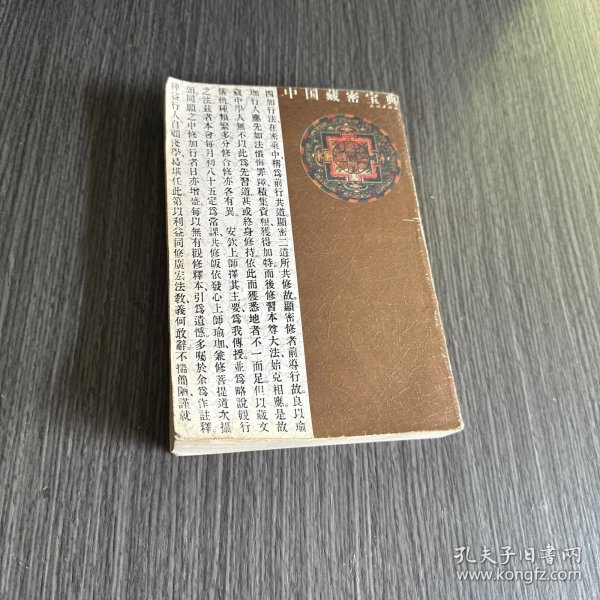 中国藏密宝典
四加行法在密乘中稱爲前行共道顯密二道所共修故。顯密修者前導行故。良以瑜
珈行人應先如法懺悔罪障積集資糧獲得加持而後修習本尊大法始克相應。是故
藏中學人無不以此爲先習道甚或終身修持依此而獲悉地者不一而足但以藏文
儀軌種類繁多分修合修亦各有異。安欽上師擇其主要、爲我傳授並爲略說觀行
之法茲者本會每月初八十五定爲常課共修皈依發心上師瑜珈兼修菩提道次攝
頌同願之中修加行者日亦增盛每以無有觀修釋本引爲遺憾多囑於余爲作註釋
俾益行人自顧淺學曷堪任此第以利益同修廣宏法教義何敢辭。不揣簡陋謹就
孔夫子旧書网
www.kongfz.com